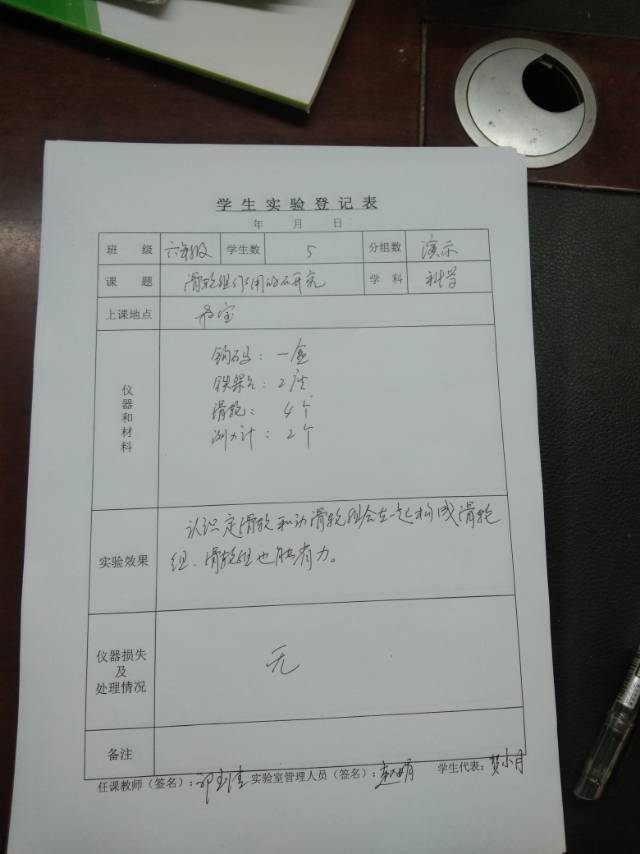 学生实验登记表
年 月 日
班 级 六年级 学生数 5 分组数 演示
课 题 滑轮组作用的研究 学 科 科学
上课地点 教室
仪器和材料
钩码：一盒
铁架台：2座
滑轮：4个
测力计：2个
实验效果
认识定滑轮和动滑轮组合在一起构成滑轮
组、滑轮组也能省力。
仪器损失
及
处理情况
无
备注
任课教师（签名）： 实验室管理人员（签名）： 学生代表：梦小月